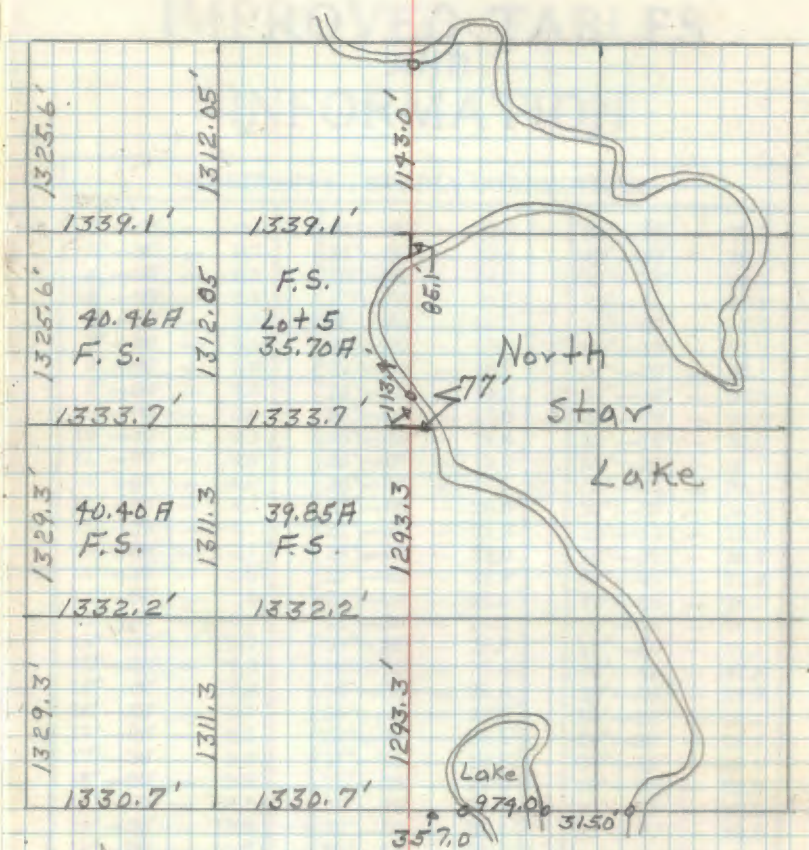 IMPROVED TABLES
1325.6'
1312.05'
1143.0'
1339.1'
1339.1'
1325.6'
40.46A
F.S.
1312.05
F.S.
Lot 5
35.70A
85.1'
North
Star
Lake
113.4'
77'
1333.7'
1333.7'
1329.3'
40.40A
F.S.
1311.3
39.85A
F.S.
1293.3
1332.2'
1332.2'
1329.3'
1311.3
1293.3'
Lake
1330.7'
1330.7'
974.0
315.0'
357.0